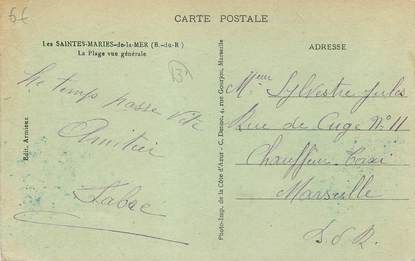 6€
CARTE POSTALE
Les SAINTES-MARIES-de-la-MER (B.-du-R)
La Plage vue générale
13
Le temps passe vite
Amitié
Edit. Armieux
Photo-Imp. de la Côte d'Azur - C. Demao, 4 rue Gourjon, Marseille
ADRESSE
Mr Sylvestre Jules
Rue de Cuge N° 11
Chauffeur
Marseille